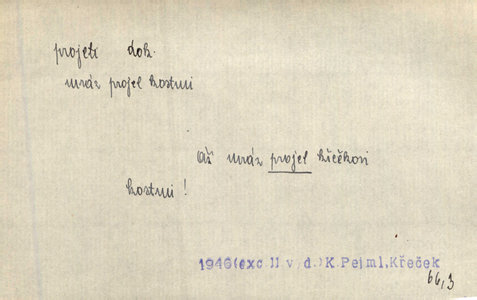 projeti dok.
mráz projel kostmi
Až mráz projel křečkovi
kostmi!
1946(exc ll v. d.) K. Pejml, Křeček
66,3